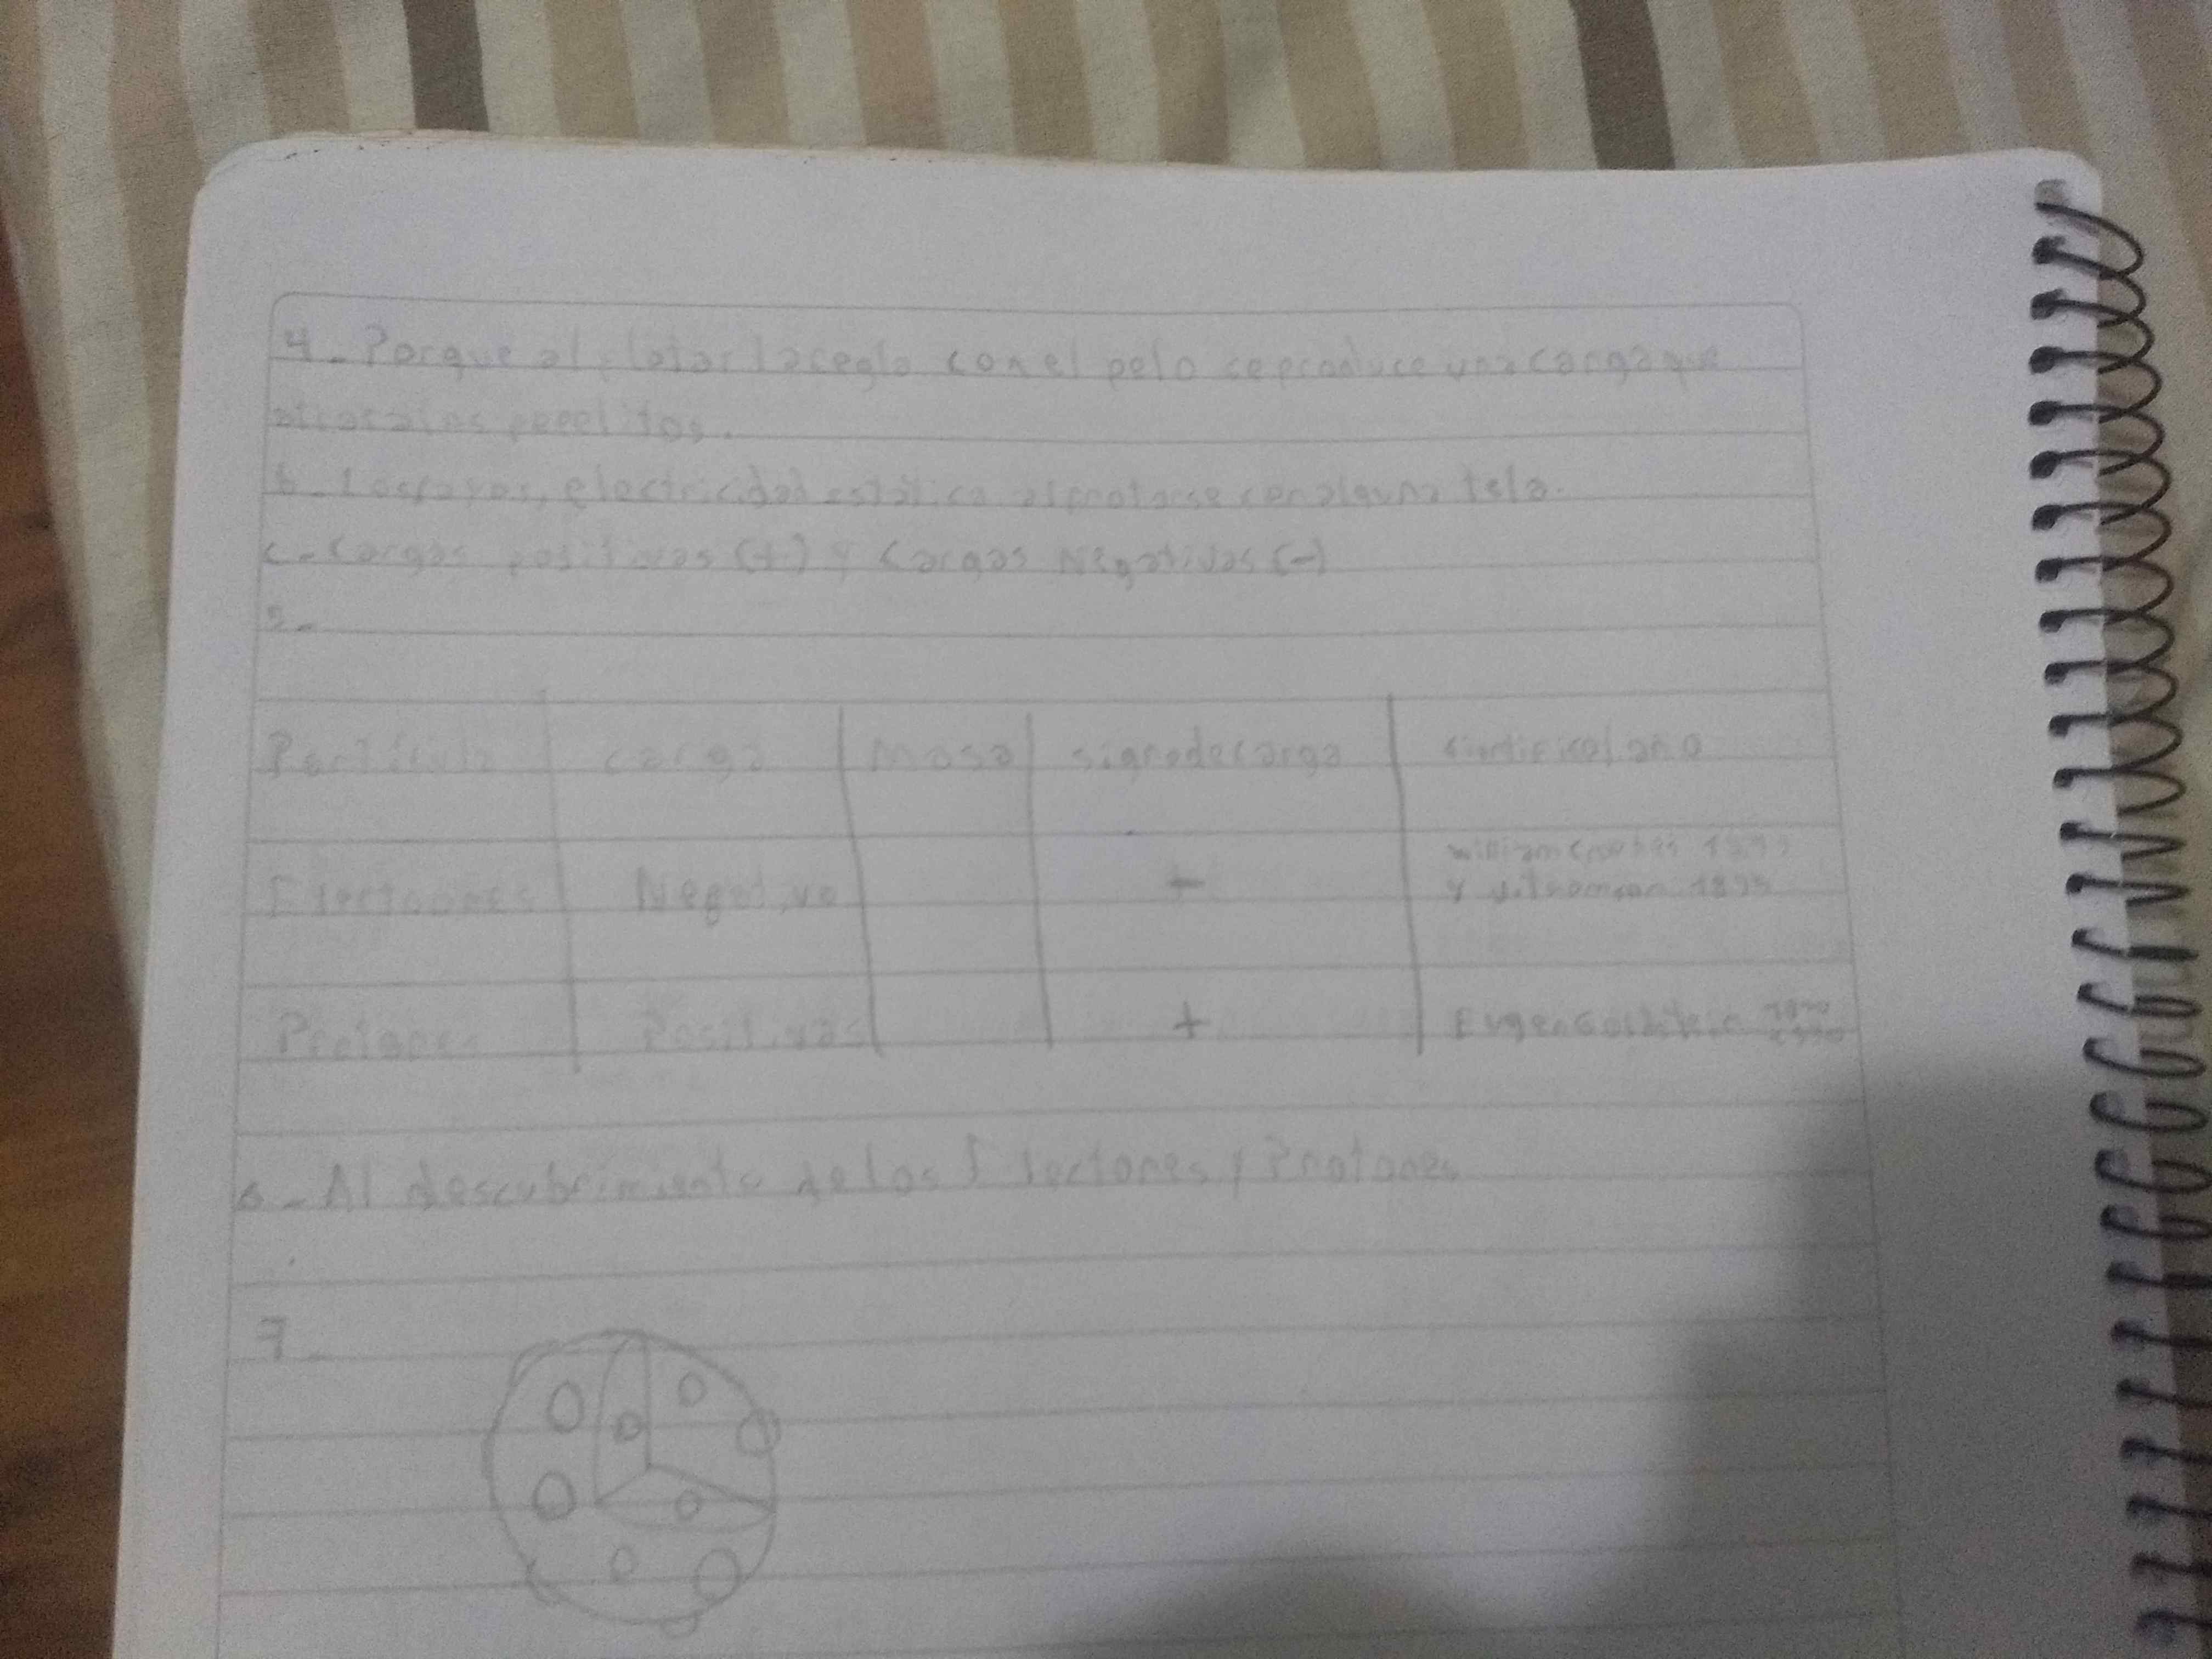 4- Porque al flotar la regla con el pelo se produce una carga que
atrae a los papelitos.
b- Los rayos, electricidad estática al frotarse con alguna tela.
c- Cargas positivas (+) y Cargas Negativas (-)
5-
Partícula carga masa signo de carga cientifico/año
William Crookes
Electrones Negativo - y J. Thomson 1895
Protones Positivas + Eugen Goldstein
6- Al descubrimiento de los Electrones y Protones
7-